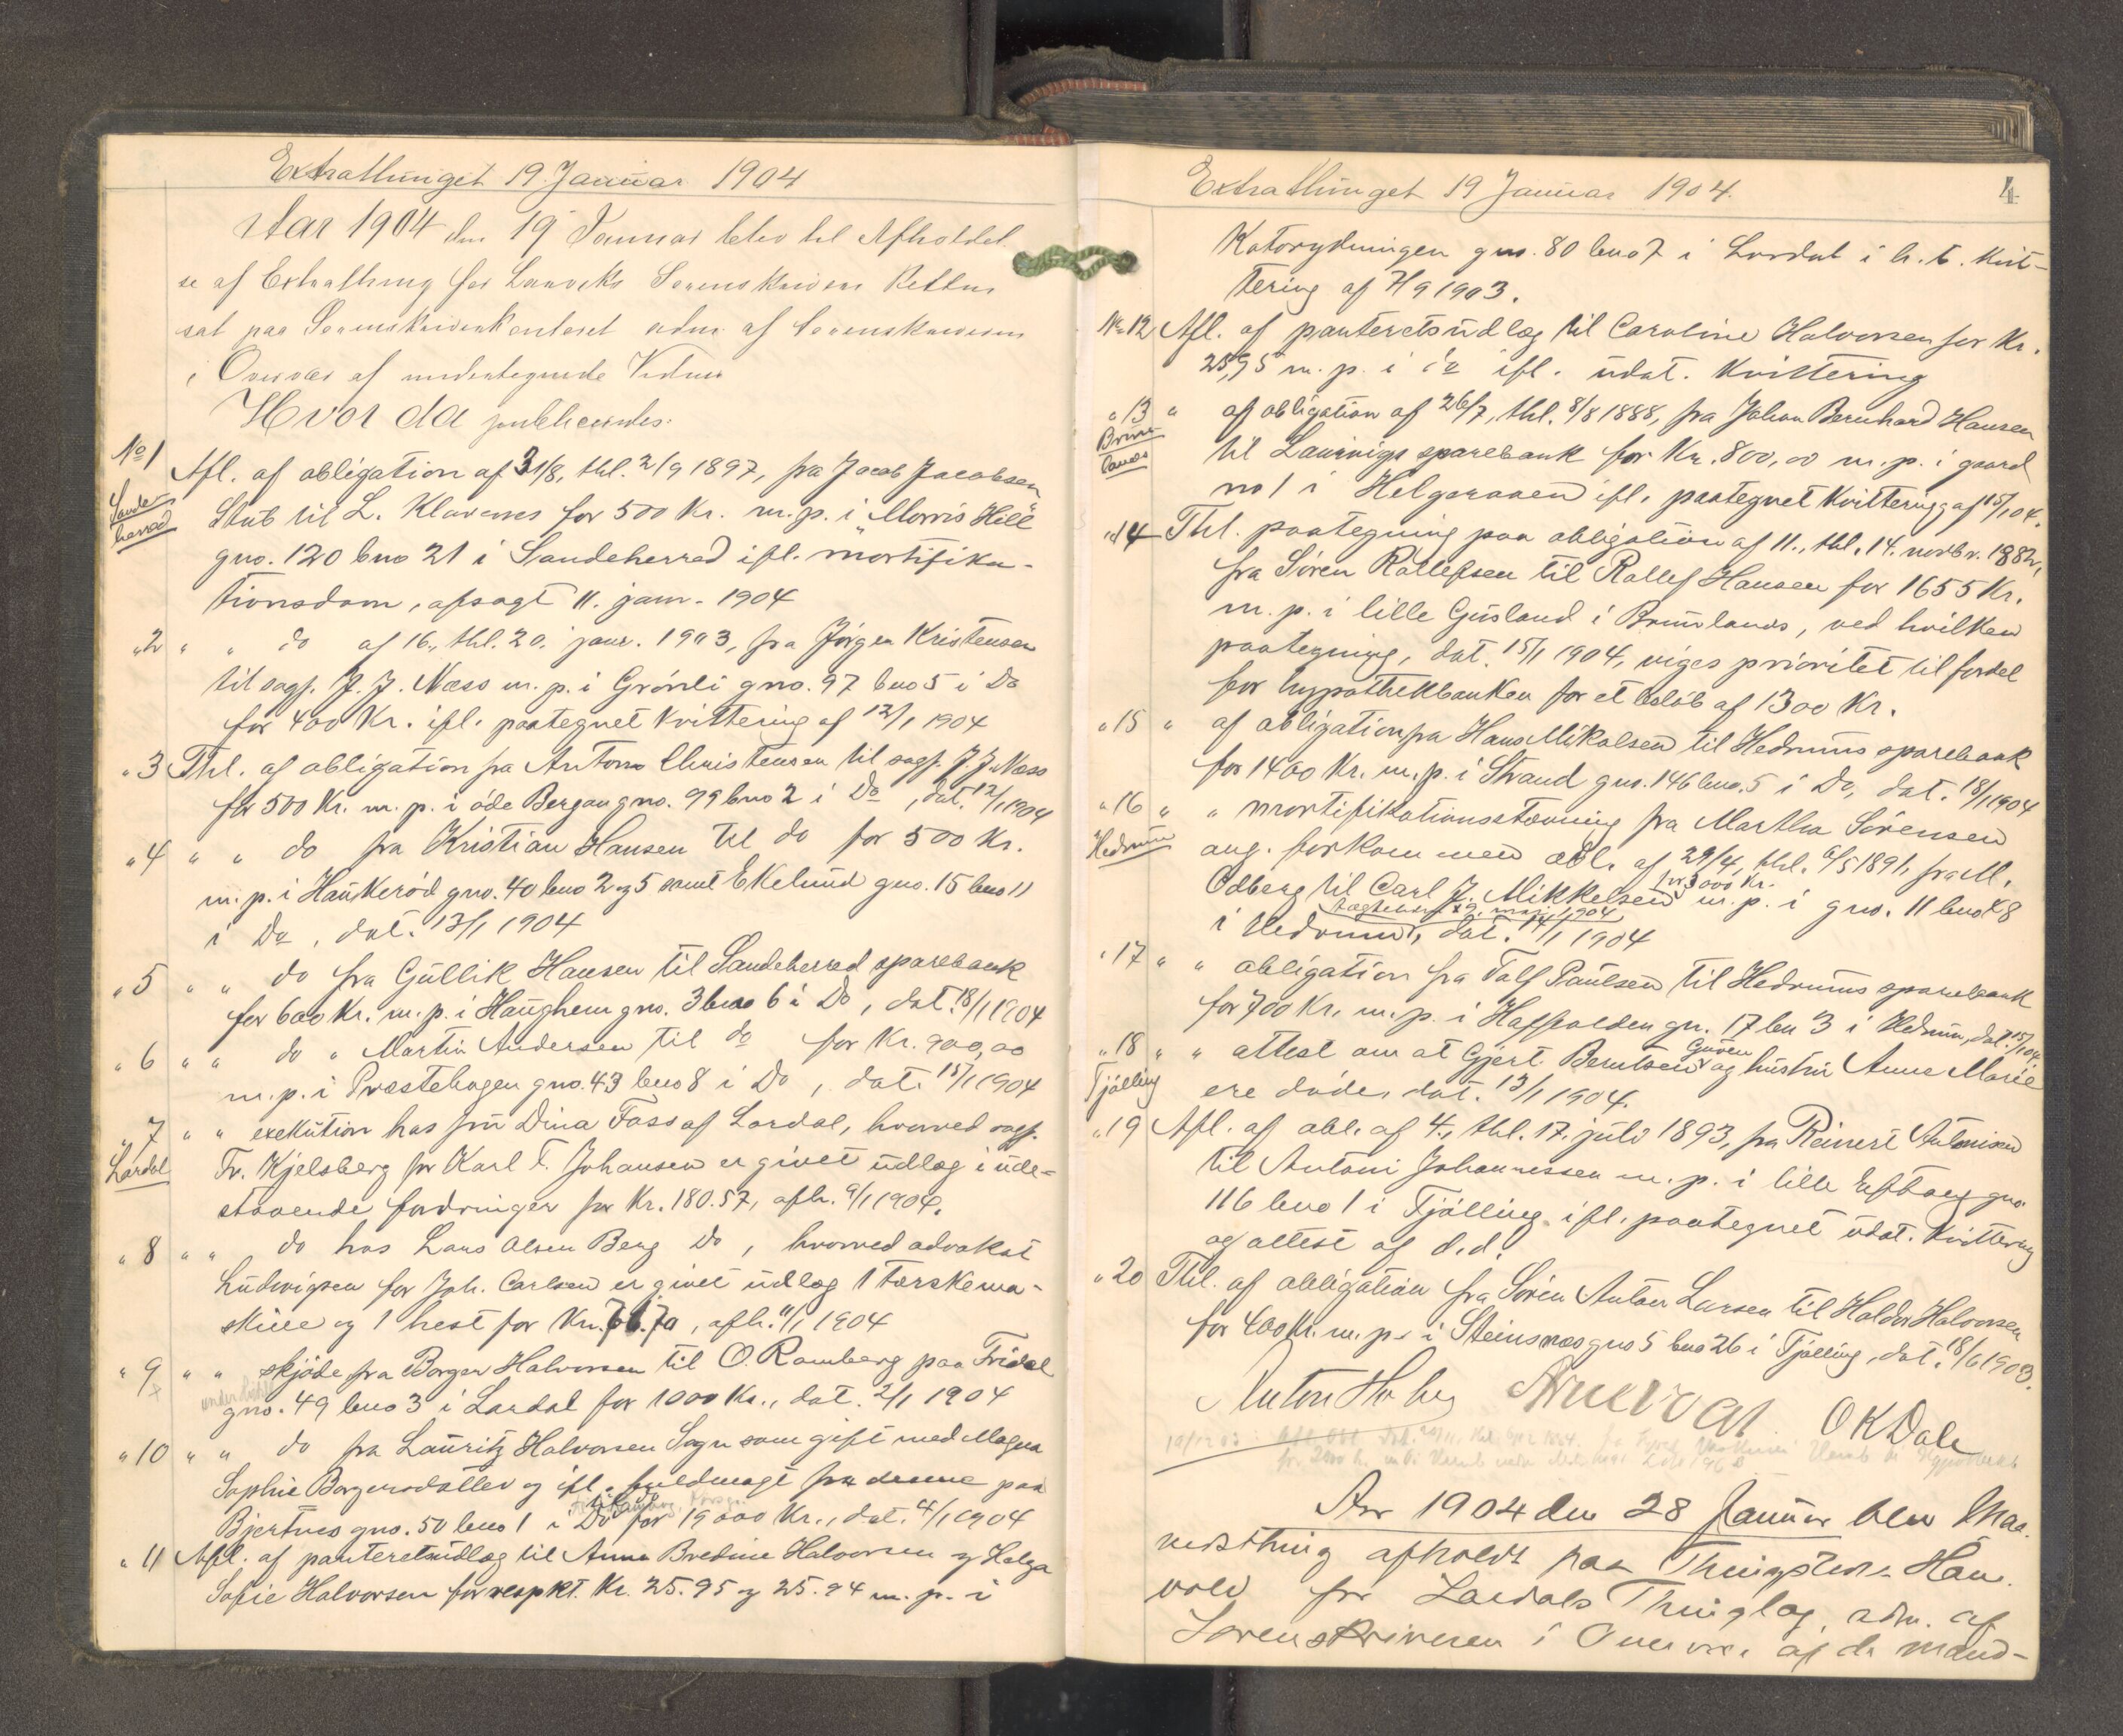 Extrathinget 19 Januar 1904
Aar 1904 den 19 Januar blev til Afholdel
se af Extrathing for Laurviks Sorenskriveri Retten
sat paa Sorenskriverkontoret adm. af Sorenskriveren
i Overvær af undertegnede Vidner
Hvor da publicertes:
No 1 Afl. af obligation af 31/8, thl. 2/9 1897, fra Jacob Jacobsen
Sandeherred
Stub til L. Klavenes for 500 Kr. m.p. i "Morris Hill"
gno. 120 bno 21 i Sandeherred ifl. mortifika-
tionsdom, afsagt 11. janr. 1904
" 2 " " do af 16., thl. 20. janr. 1903, fra Jørgen Kristensen
til sagf. J. J. Næss m.p. i Grönli gno. 97 bno 5 i Do
for 400 Kr. ifl. paategnet kvittering af 12/1 1904
" 3 Thl. af obligation fra Anton Christensen til sagf. J. J. Næss
for 500 Kr. m.p. i öde Bergan gno. 99 bno 2 i Do, dat. 12/1 1904
" 4 " " do fra Kristian Hansen til do for 500 Kr.
m.p. i Haukeröd gno. 40 bno 2 og 5 samt Ekelund gno. 15 bno 11
i Do, dat. 13/1 1904
" 5 " " do fra Gullik Hansen til Sandeherred sparebank
for 600 Kr. m.p. i Haughem gno. 3 bno 6 i Do, dat. 18/1 1904
" 6 " " do " Martin Andersen til do for Kr. 900,00
m.p. i Præstehagen gno. 43 bno 8 i Do, dat. 15/1 1904
" 7 " " exekution hos fru Dina Foss af Lardal, hvorved sagf.
Lardal
Fr. Kjelsberg for Karl T. Johansen er givet udlæg i ude-
staaende fordringer for Kr. 180.57, afh. 9/1 1904.
" 8 " " do hos Lars Olsen Berg Do, hvorved advokat
Ludvigsen for Joh. Carlsen er givet udlæg 1 tærskema-
skine og 1 hest for Kr. 76.70, afh. 11/1 1904
" 9 " " skjöde fra Borger Halvorsen til O. Ramberg paa Fridal
gno. 49 bno 3 i Lardal for 1000 Kr., dat. 2/1 1904
" 10 " " do fra Lauritz Halvorsen Sogn som gift med Magna
Sophie Borgersdatter og ifl. fuldmagt fra denne paa
til do
Bjertnes gno. 50 bno 1 i Do for 19000 Kr., dat. 4/1 1904
" 11 Afl. af panteretsudlæg til Anna Bredine Halvorsen og Helga
Sofie Halvorsen for respkt. Kr. 25.95 og 25.94 m.p. i
Extrathinget 19 Januar 1904.
4
Katorydningen gno. 80 bno 7 i Lardal i h.t. kvit-
tering af 7/9 1903.
No 12 Afl. af panteretsudlæg til Caroline Halvorsen for Kr.
25,95 m.p. i do ifl. udat. kvittering
" 13 " af obligation af 26/7, thl. 8/8 1888, fra Johan Bernhard Hansen
Brunlanes
til Laurvigs sparebank for Kr. 800,00 m.p. i gaard
no 1 i Helgeroaen ifl. paategnet kvittering af 15/1 04.
" 14 Thl. paategning paa obligation af 11., thl. 14. novbr. 1882,
fra Sören Rollefsen til Rollef Hansen for 1655 Kr.
m.p. i lille Gusland i Brunlanes, ved hvilken
paategning, dat. 15/1 1904, viges prioritet til fordel
for hypothekbanken for et belöb af 1300 Kr.
" 15 " af obligation fra Hans Mikalsen til Hedrums sparebank
for 1400 Kr. m.p. i Strand gno. 146 bno. 5 i Do, dat. 18/1 1904
" 16 " " mortifikationsstævning fra Martha Sörensen
Hedrum
ang. forkommen obl. af 29/4, thl. 6/5 1891, fra M.
for 3000 Kr.
Odberg til Carl J. Mikkelsen m.p. i gno. 11 bno 8
i Hedrum, dat. 14/1 1904
" 17 " " obligation fra Tolf Paulsen til Hedrums sparebank
for 700 Kr. m.p. i Hafsfolden gn. 17 bn 3 i Hedrum, dat. 15/1 04.
" 18 " " attest om at Gjert Berntsen Guöen og hustru Anne Marie
Tjölling
ere döde, dat. 13/1 1904.
" 19 Afl. af obl. af 4., thl. 17. juli 1893, fra Reinert Antonisen
til Antoni Johannessen m.p. i lille Eftang gno.
116 bno 1 i Tjölling ifl. paategnet udat. kvittering
og attest af d.d.
" 20 Thl. af obligation fra Sörin Anton Larsen til Haldor Halvorsen
for 400 Kr. m.p. i Steinsnæs gno 5 bno 26 i Tjölling, dat. 18/6 1903.
Anton OKDale
Aar 1904 den 28 Januar blev Maa-
nedsthing afholdt paa Thingstedet Han-
vold for Lardals Thinglag, adm. af
Sorenskriveren i Overvær af de mænd-